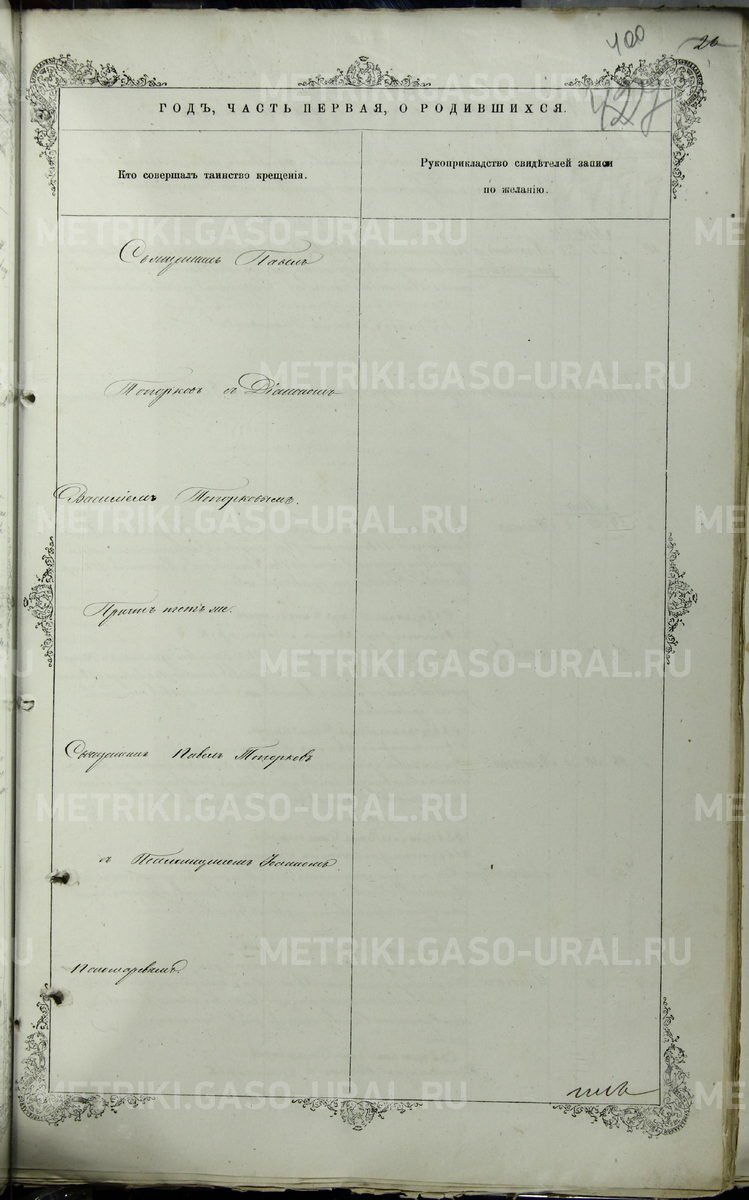 400
26
427
ГОДЪ, ЧАСТЬ ПЕРВАЯ, О РОДИВШИХСЯ.
Кто совершалъ таинство крещенія.
Рукоприкладство свидѣтелей записи
по желанію.
Священникъ Павелъ
Топорковъ съ Діакономъ
Василіемъ Топорковымъ.
Причтъ тотъ же.
Священникъ Павелъ Топорковъ
съ Псаломщикомъ Іоанномъ
Пономаревымъ.
METRIKI.GASO-URAL.RU
METRIKI.GASO-URAL.RU
METRIKI.GASO-URAL.RU
METRIKI.GASO-URAL.RU
METRIKI.GASO-URAL.RU
METRIKI.GASO-URAL.RU
METRIKI.GASO-URAL.RU
METRIKI.GASO-URAL.RU